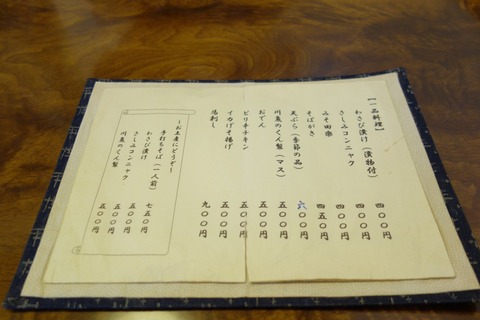 【一品料理】
わさび漬け(漬物付) 四〇〇円
さしみコンニャク 四〇〇円
みそ田楽 四〇〇円
そばがき 四五〇円
天ぷら(季節の品) 六〇〇円
川魚のくん製(マス) 五〇〇円
おでん 五〇〇円
ピリ辛チキン 五〇〇円
イカげそ揚げ 五〇〇円
馬刺し 九〇〇円
ーお土産にどうぞー
手打ちそば(一人前) 七五〇円
わさび漬け 五〇〇円
さしみコンニャク 五〇〇円
川魚のくん製 五〇〇円